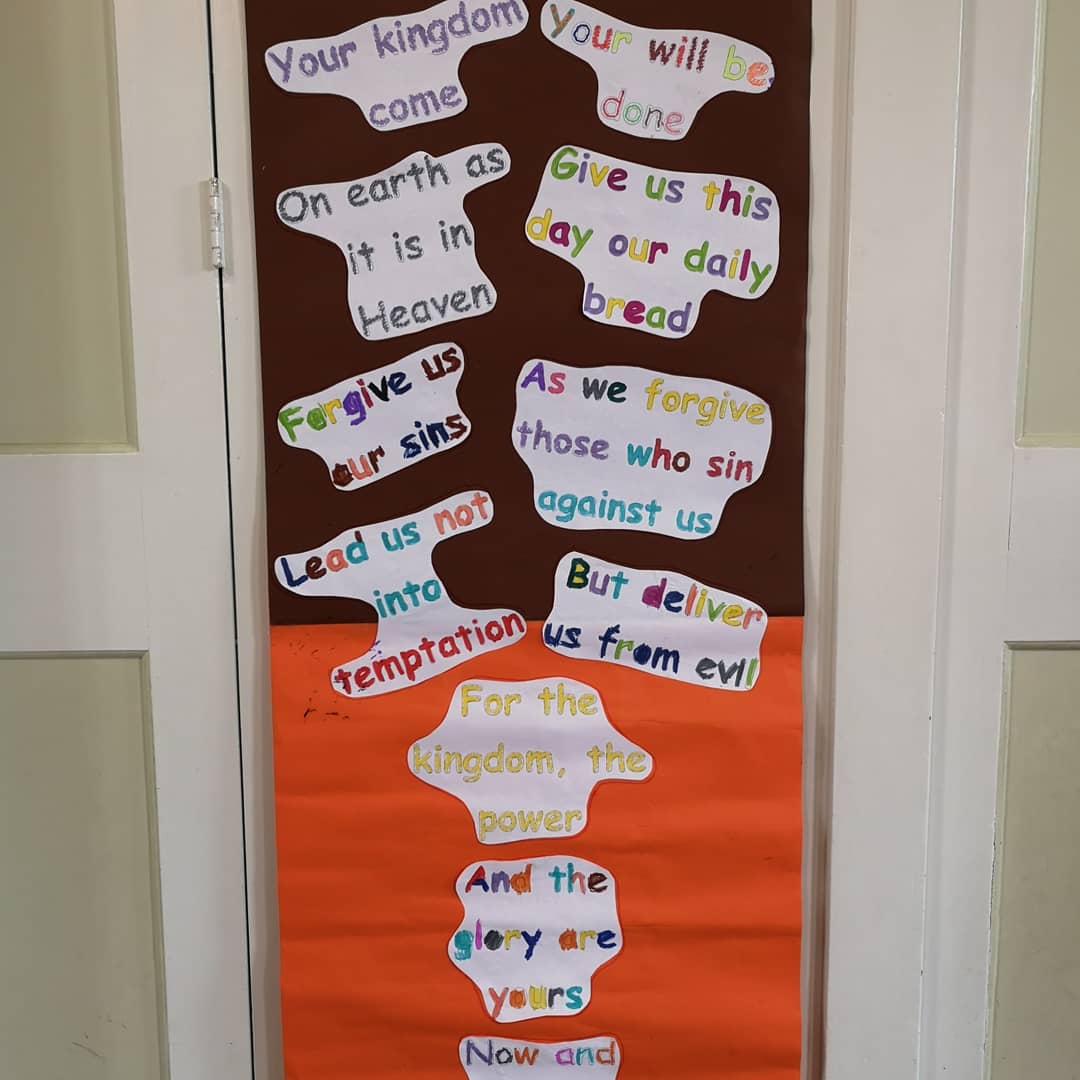 Your kingdom
come
Your will be
done
On earth as
it is in
Heaven
Give us this
day our daily
bread
Forgive us
our sins
As we forgive
those who sin
against us
Lead us not
into
temptation
But deliver
us from evil
For the
kingdom, the
power
And the
glory are
yours
Now and